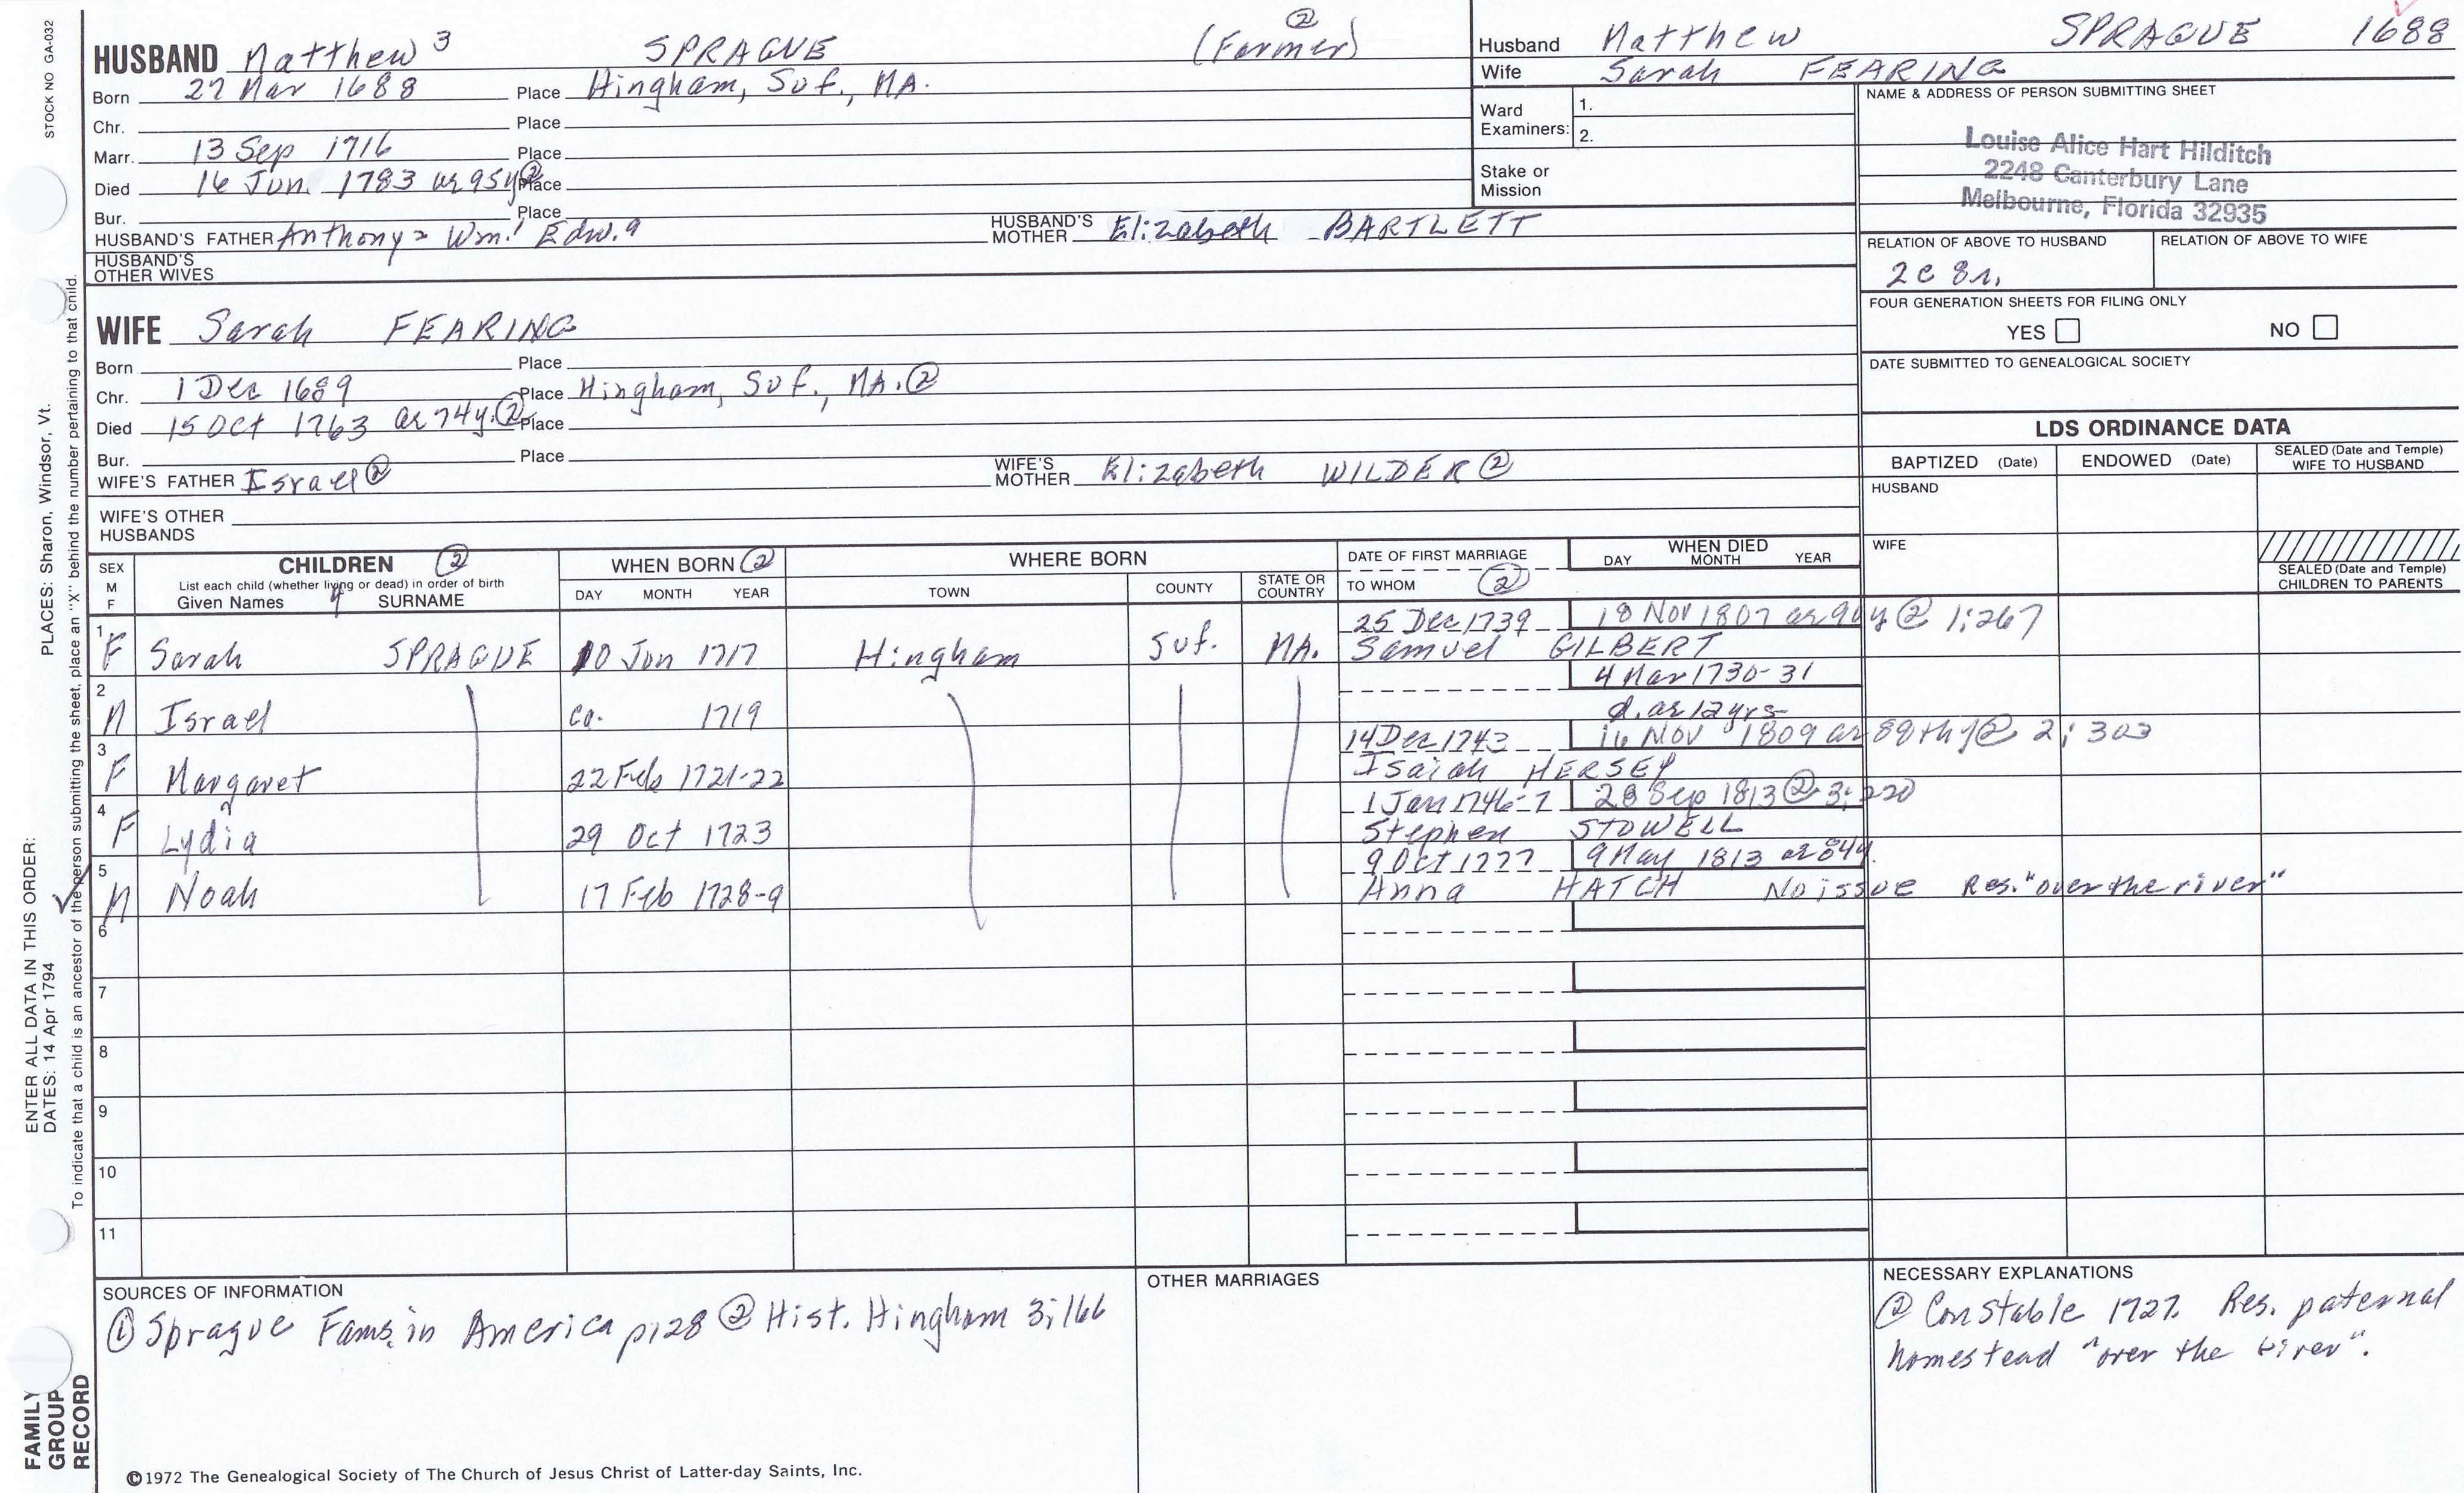 STOCK NO GA-032
HUSBAND Matthew 3 SPRAGUE (Farmer) ②
Born 27 Mar 1688 Place Hingham, Suf., MA.
Chr. Place
Marr. 13 Sep 1716 Place
Died 16 Jun. 1783 ae 95y ② Place
Bur. Place
HUSBAND'S FATHER Anthony 2 Wm. 1 Edw. a
HUSBAND'S MOTHER Elizabeth BARTLETT
HUSBAND'S OTHER WIVES
WIFE Sarah FEARING
Born Place
Chr. 1 Dec 1689 Place Hingham, Suf., MA. ②
Died 15 Oct 1763 ae 74y. ② Place
Bur. Place
WIFE'S FATHER Israel ②
WIFE'S MOTHER Elizabeth WILDER ②
WIFE'S OTHER HUSBANDS
Husband Matthew SPRAGUE 1688
Wife Sarah FEARING
Ward Examiners: 1.
2.
Stake or Mission
NAME & ADDRESS OF PERSON SUBMITTING SHEET
Louise Alice Hart Hilditch
2248 Canterbury Lane
Melbourne, Florida 32935
RELATION OF ABOVE TO HUSBAND RELATION OF ABOVE TO WIFE
2c 8r.
FOUR GENERATION SHEETS FOR FILING ONLY
YES NO
DATE SUBMITTED TO GENEALOGICAL SOCIETY
LDS ORDINANCE DATA
BAPTIZED (Date) ENDOWED (Date) SEALED (Date and Temple) WIFE TO HUSBAND
HUSBAND
WIFE
SEALED (Date and Temple) CHILDREN TO PARENTS
SEX M F
CHILDREN ②
List each child (whether living or dead) in order of birth
Given Names 4 SURNAME
WHEN BORN ②
DAY MONTH YEAR
WHERE BORN
TOWN COUNTY STATE OR COUNTRY
DATE OF FIRST MARRIAGE
TO WHOM ②
WHEN DIED
DAY MONTH YEAR
1 25 Dec 1739 18 Nov 1807 ae 90y ② 1:267
F Sarah SPRAGUE 10 Jun 1717 Hingham Suf. MA. Samuel GILBERT
2 4 Mar 1730-31
M Israel ca. 1719 d. ae 12 yrs
3 14 Dec 1743 16 Nov 1809 ae 88th y ② 2:303
F Margaret 22 Feb 1721-22 Isaiah HERSEY
4 1 Jan 1746-7 28 Sep 1813 ② 3:220
F Lydia 29 Oct 1723 Stephen STOWELL
5 9 Oct 1777 9 May 1813 ae 84y.
M Noah 17 Feb 1728-9 Anna HATCH No issue Res. "over the river"
6
7
8
9
10
11
SOURCES OF INFORMATION
① Sprague Fams. in America p128 ② Hist. Hingham 3:166
OTHER MARRIAGES
NECESSARY EXPLANATIONS
② Constable 1727. Res. paternal
homestead "over the river".
©1972 The Genealogical Society of The Church of Jesus Christ of Latter-day Saints, Inc.
ENTER ALL DATA IN THIS ORDER:
DATES: 14 Apr 1794 PLACES: Sharon, Windsor, Vt.
To indicate that a child is an ancestor of the person submitting the sheet, place an "X" behind the number pertaining to that child.
FAMILY
GROUP
RECORD